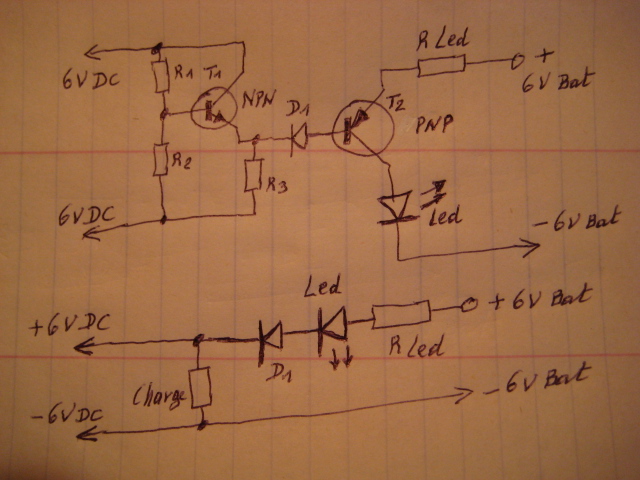 R Led
+
6V Bat
6VDC
R1
T1
NPN
D1
T2
PNP
R2
R3
Led
6VDC
-6V Bat
Led
+6V Bat
+6VDC
D1
R Led
Charge
-6V Bat
-6VDC